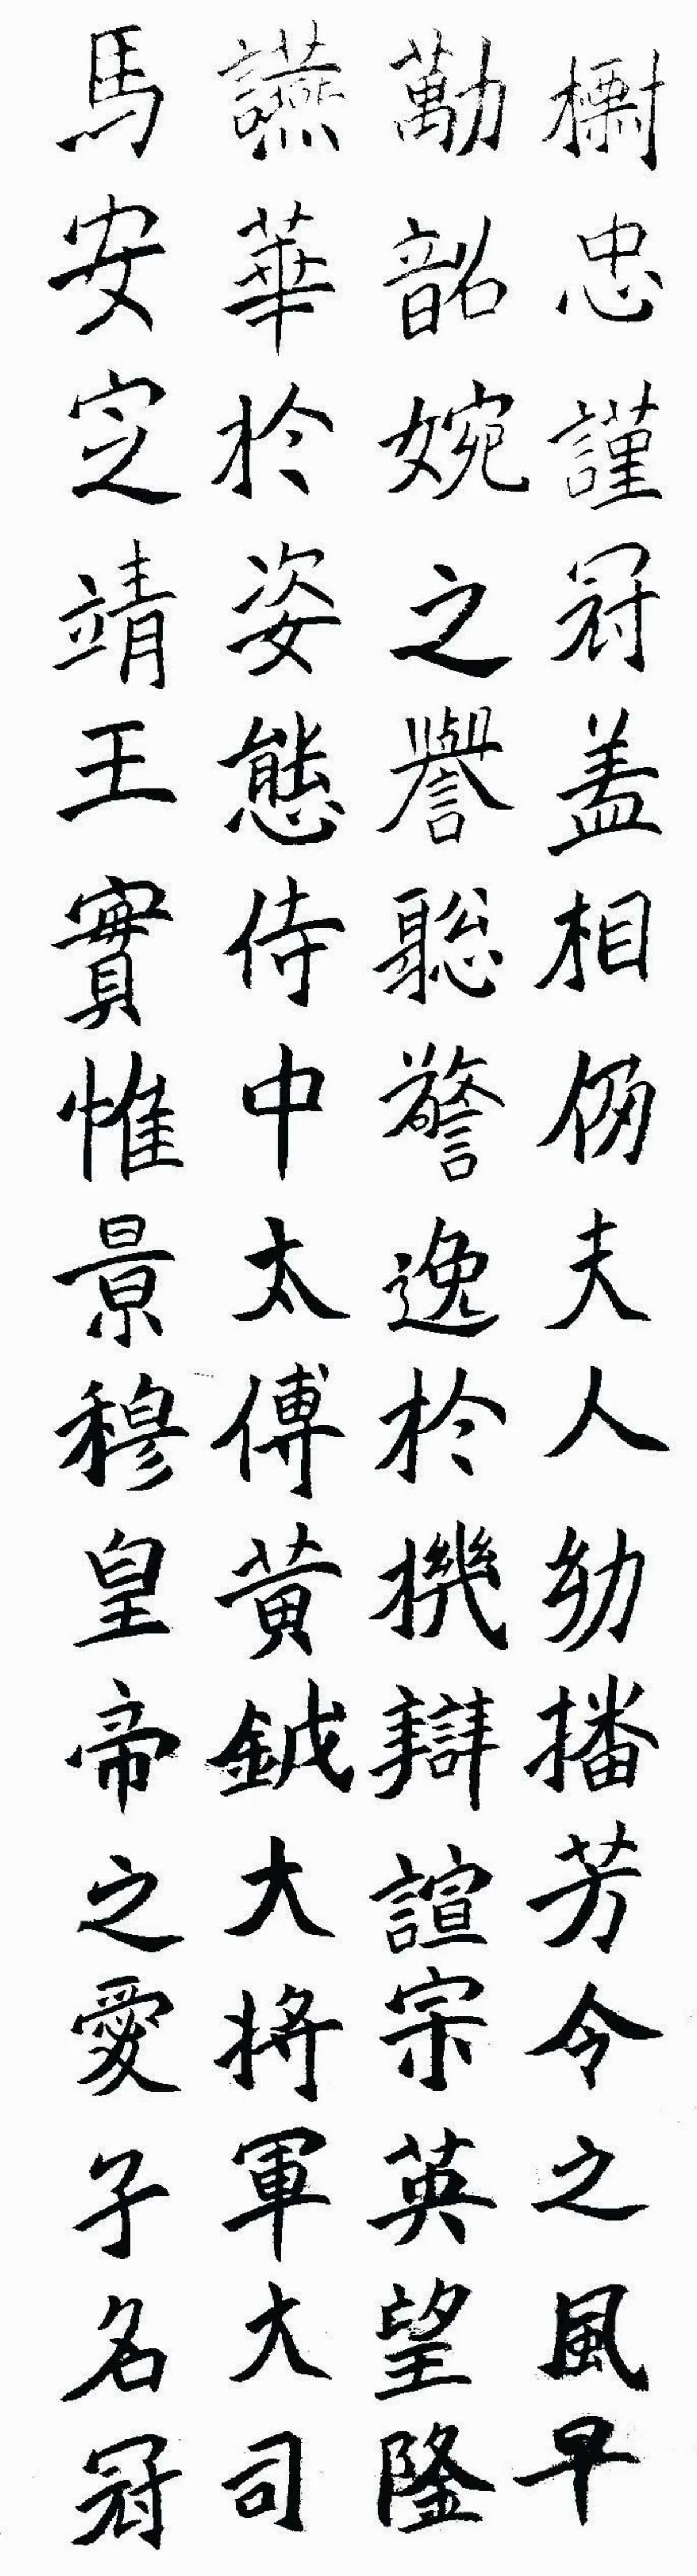 榭忠謹冠盖相仍夫人幼播芳令之風早
勱韶婉之譽聡警逸於機辯諠宗英望隆
讌華於姿態侍中太傅黄鉞大將軍大司
馬安定靖王實惟景穆皇帝之愛子名冠